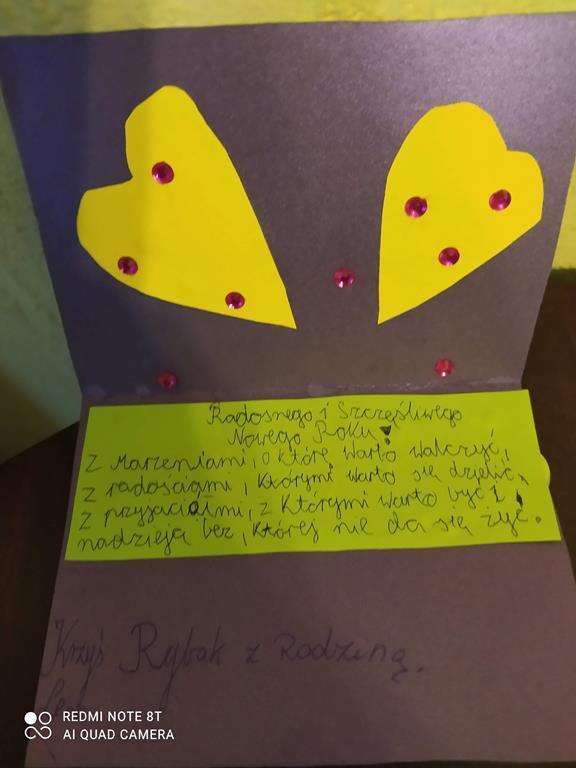 Radosnego i Szczęśliwego
Nowego Roku!
Z marzeniami, o które warto walczyć,
z radościami, którymi warto się dzielić,
z przyjaciółmi, z którymi warto być i
nadzieją bez, której nie da się żyć.
Krzyś Rybak z Rodziną.
REDMI NOTE 8T
AI QUAD CAMERA